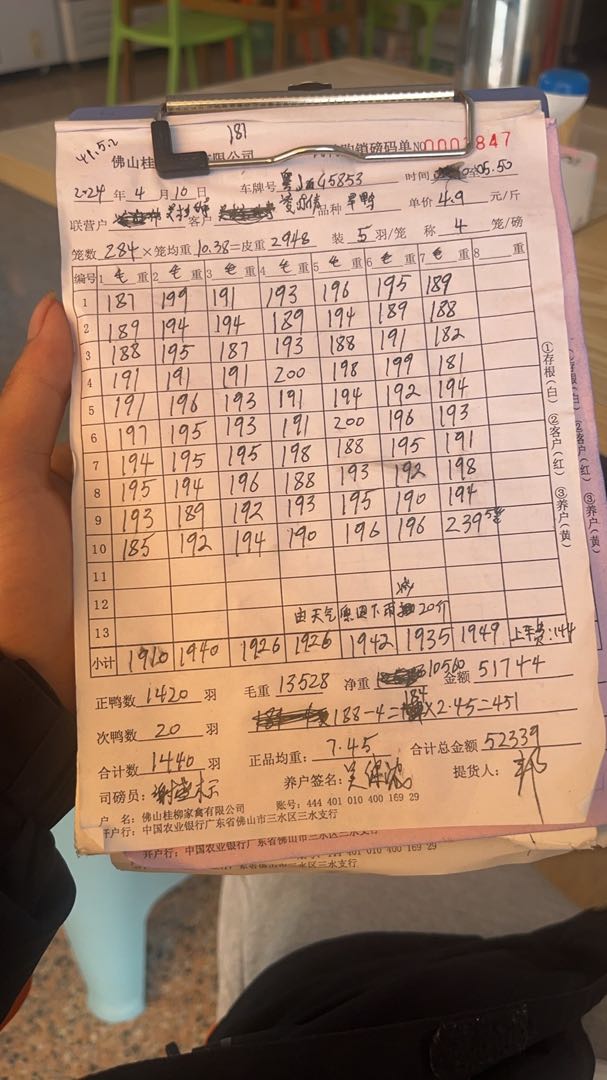 181
41.5.2
佛山桂 有限公司 购销磅码单 NO 0003847
2024 年 4 月 10 日 车牌号 G5853 时间 05.50
联营户 客户 品种 单价 4.9 元/斤
笼数 284 ×笼均重 10.38 =皮重 2948 装 5 羽/笼 称 4 笼/磅
编号 1 毛 重 2 毛 重 3 毛 重 4 毛 重 5 毛 重 6 毛 重 7 毛 重 8 重
1 187 199 191 193 196 195 189
2 189 194 194 189 194 189 188
3 188 195 187 193 188 191 182
4 191 191 191 200 198 199 181
5 191 196 193 191 194 192 194
6 197 195 193 191 200 196 193
7 194 195 195 198 188 195 191
8 195 194 196 188 193 192 198
9 193 189 192 193 195 190 194
10 185 192 194 190 196 196 239 5笼
11
12 减
由天气 下雨 20斤
13
小计 1910 1940 1926 1926 1942 1935 1949 上车费:144
正鸭数 1420 羽 毛重 13528 净重 10560 金额 51744
次鸭数 20 羽 188-4=184×2.45=451
合计数 1440 羽 正品均重: 7.45 合计总金额 52339
司磅员: 养户签名: 提货人:
户 名: 佛山桂柳家禽有限公司 账号: 444 401 010 400 169 29
开户行: 中国农业银行广东省佛山市三水区三水支行
①存根(白) ②客户(红) ③养户(黄)
②客户(红) ③养户(黄)
401 010 400 169 29
开户行: 中国农业银行广东省佛山市三水区三水支行